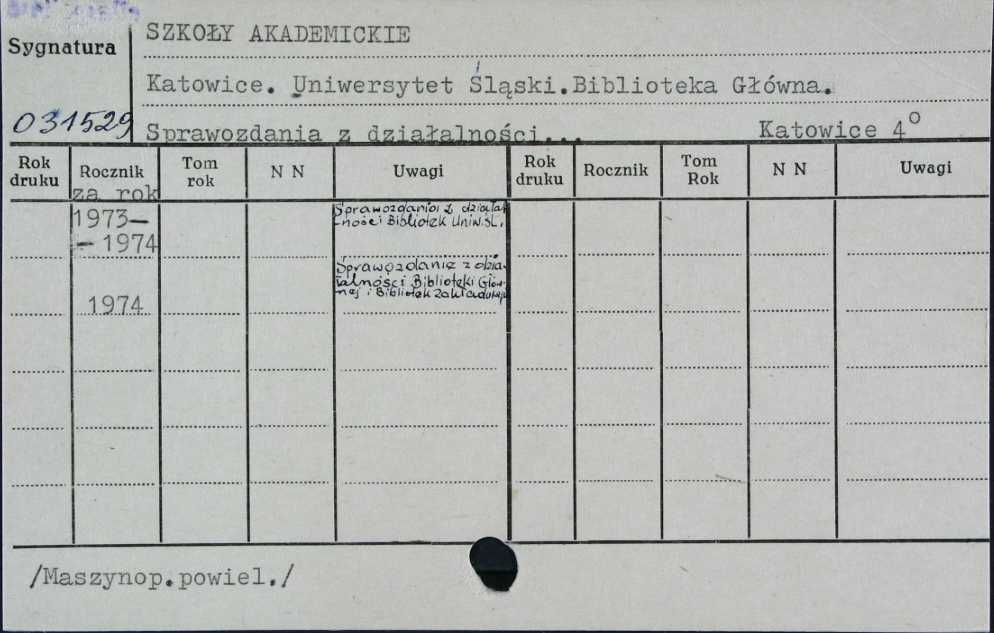 SZKOŁY AKADEMICKIE
Sygnatura
Katowice. Uniwersytet Śląski.Biblioteka Główna.
031529
Sprawozdania z działalności... Katowice 4°
Rok druku Rocznik Tom rok N N Uwagi Rok druku Rocznik Tom Rok N N Uwagi
za rok
1973— Sprawozdania z działal-
— 1974 -ności Bibliotek Uniw.Śl.
Sprawozdanie z dzia-
łalności Biblioteki Głów-
1974 nej i Bibliotek Zakładowych
/Maszynop.powiel./